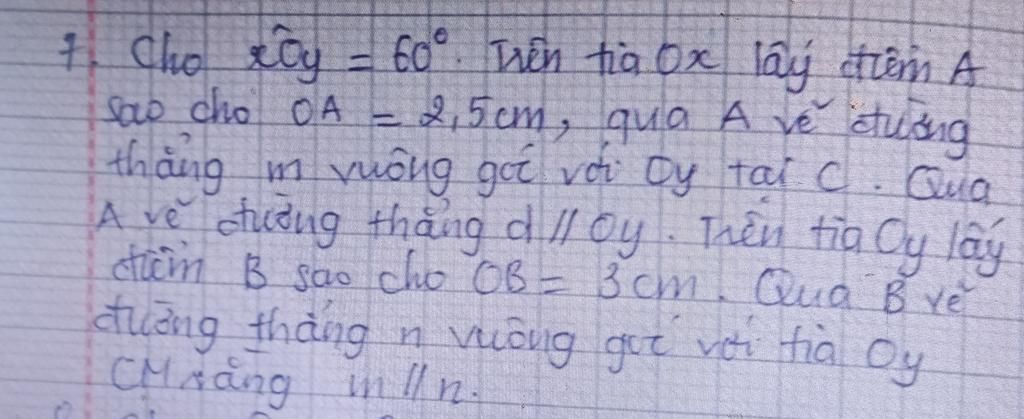 7. Cho xÔy = 60°. Trên tia Ox lấy điểm A
sao cho OA = 2,5cm, qua A vẽ đường
thẳng m vuông góc với Oy tại C. Qua
A vẽ đường thẳng d // Oy. Trên tia Oy lấy
điểm B sao cho OB = 3cm. Qua B vẽ
đường thẳng n vuông góc với tia Oy
CM rằng m // n.